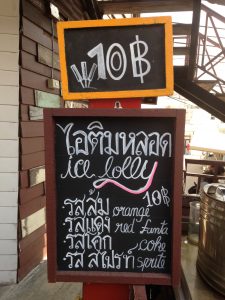 10฿
ไอติมหลอด
ice lolly
10฿
รสส้ม orange
รสแดง red fanta
รสโค๊ก coke
รส สไปร์ท sprite